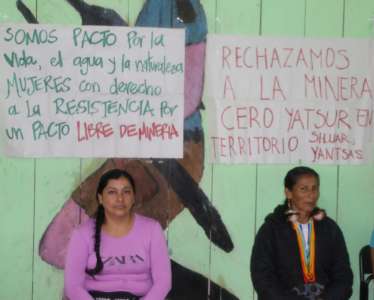 SOMOS PACTO Por la
vida, el agua y la naturaleza
MUJERES con derecho
a la RESISTENCIA Por
un PACTO LIBRE DE MINERIA
RECHAZAMOS
A LA MINERA
CERO YATSUR EN
TERRITORIO SHUAR
YANTSAS
ZARA